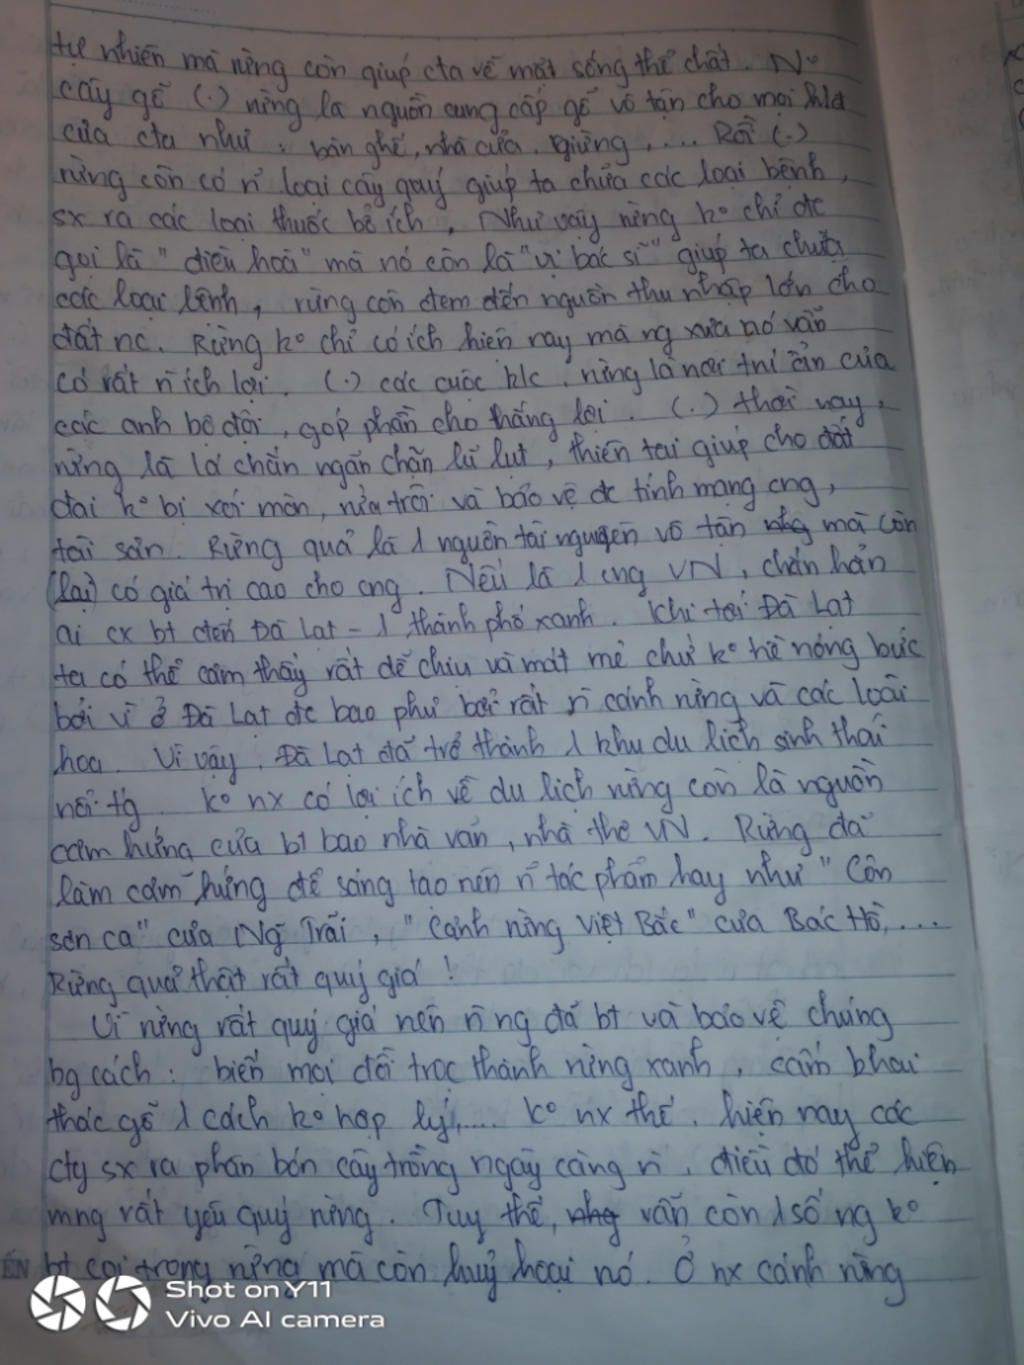 tự nhiên mà rừng còn giúp cta về mặt sống thể chất. N~
cây gỗ (.) rừng là nguồn cung cấp gỗ vô tận cho mọi
của cta như: bàn ghế, nhà cửa, giường, .... Rồi (.)
rừng còn có n~ loại cây quý giúp ta chữa các loại bệnh,
sx ra các loại thuốc bổ ích, Như vậy rừng k° chỉ đc
gọi là "điều hoà" mà nó còn là "vị bác sĩ" giúp ta chữa
các loại bệnh, rừng còn đem đến nguồn thu nhập lớn cho
đất nc. Rừng k° chỉ có ích hiện nay mà ng xưa nó vẫn
có rất n` ích lợi. (.) các cuộc k/c, rừng là nơi trú ẩn của
các anh bộ đội, góp phần cho thắng lợi. (.) thời nay,
rừng là lá chắn ngăn chặn lũ lụt, thiên tai giúp cho đất
đai k° bị xói mòn, rửa trôi và bảo vệ đc tính mạng cng,
tài sản. Rừng quả là 1 nguồn tài nguyên vô tận nhg mà còn
(lại) có giá trị cao cho cng. Nếu là 1 cng VN, chắn hẳn
ai cx bt đến Đà Lạt - 1 thành phố xanh. Khi tới Đà Lạt
ta có thể cảm thấy rất dễ chịu và mát mẻ chứ k° hề nóng bức
bởi vì ở Đà Lạt đc bao phủ bởi rất n` cánh rừng và các loài
hoa. Vì vậy, Đà Lạt đã trở thành 1 khu du lịch sinh thái
nổi tg. k° nx có lợi ích về du lịch rừng còn là nguồn
cảm hứng của bt bao nhà văn, nhà thơ VN. Rừng đã
làm cảm hứng để sáng tạo nên n~ tác phẩm hay như "Côn
sơn ca" của Ng~ Trãi, "Cảnh rừng Việt Bắc" của Bác Hồ,....
Rừng quả thật rất quý giá!
Vì rừng rất quý giá nên n` ng đã bt và bảo vệ chúng
bg cách: biến mọi đồi trọc thành rừng xanh, cấm khai
thác gỗ 1 cách k° hợp lý,.... k° nx thế, hiện nay các
cty sx ra phân bón cây trồng ngày càng n`, điều đó thể hiện
mng rất yêu quý rừng. Tuy thế, nhg vẫn còn 1 số ng k°
bt coi trọng rừng mà còn huỷ hoại nó. Ở nx cánh rừng
Shot on Y11
Vivo AI camera